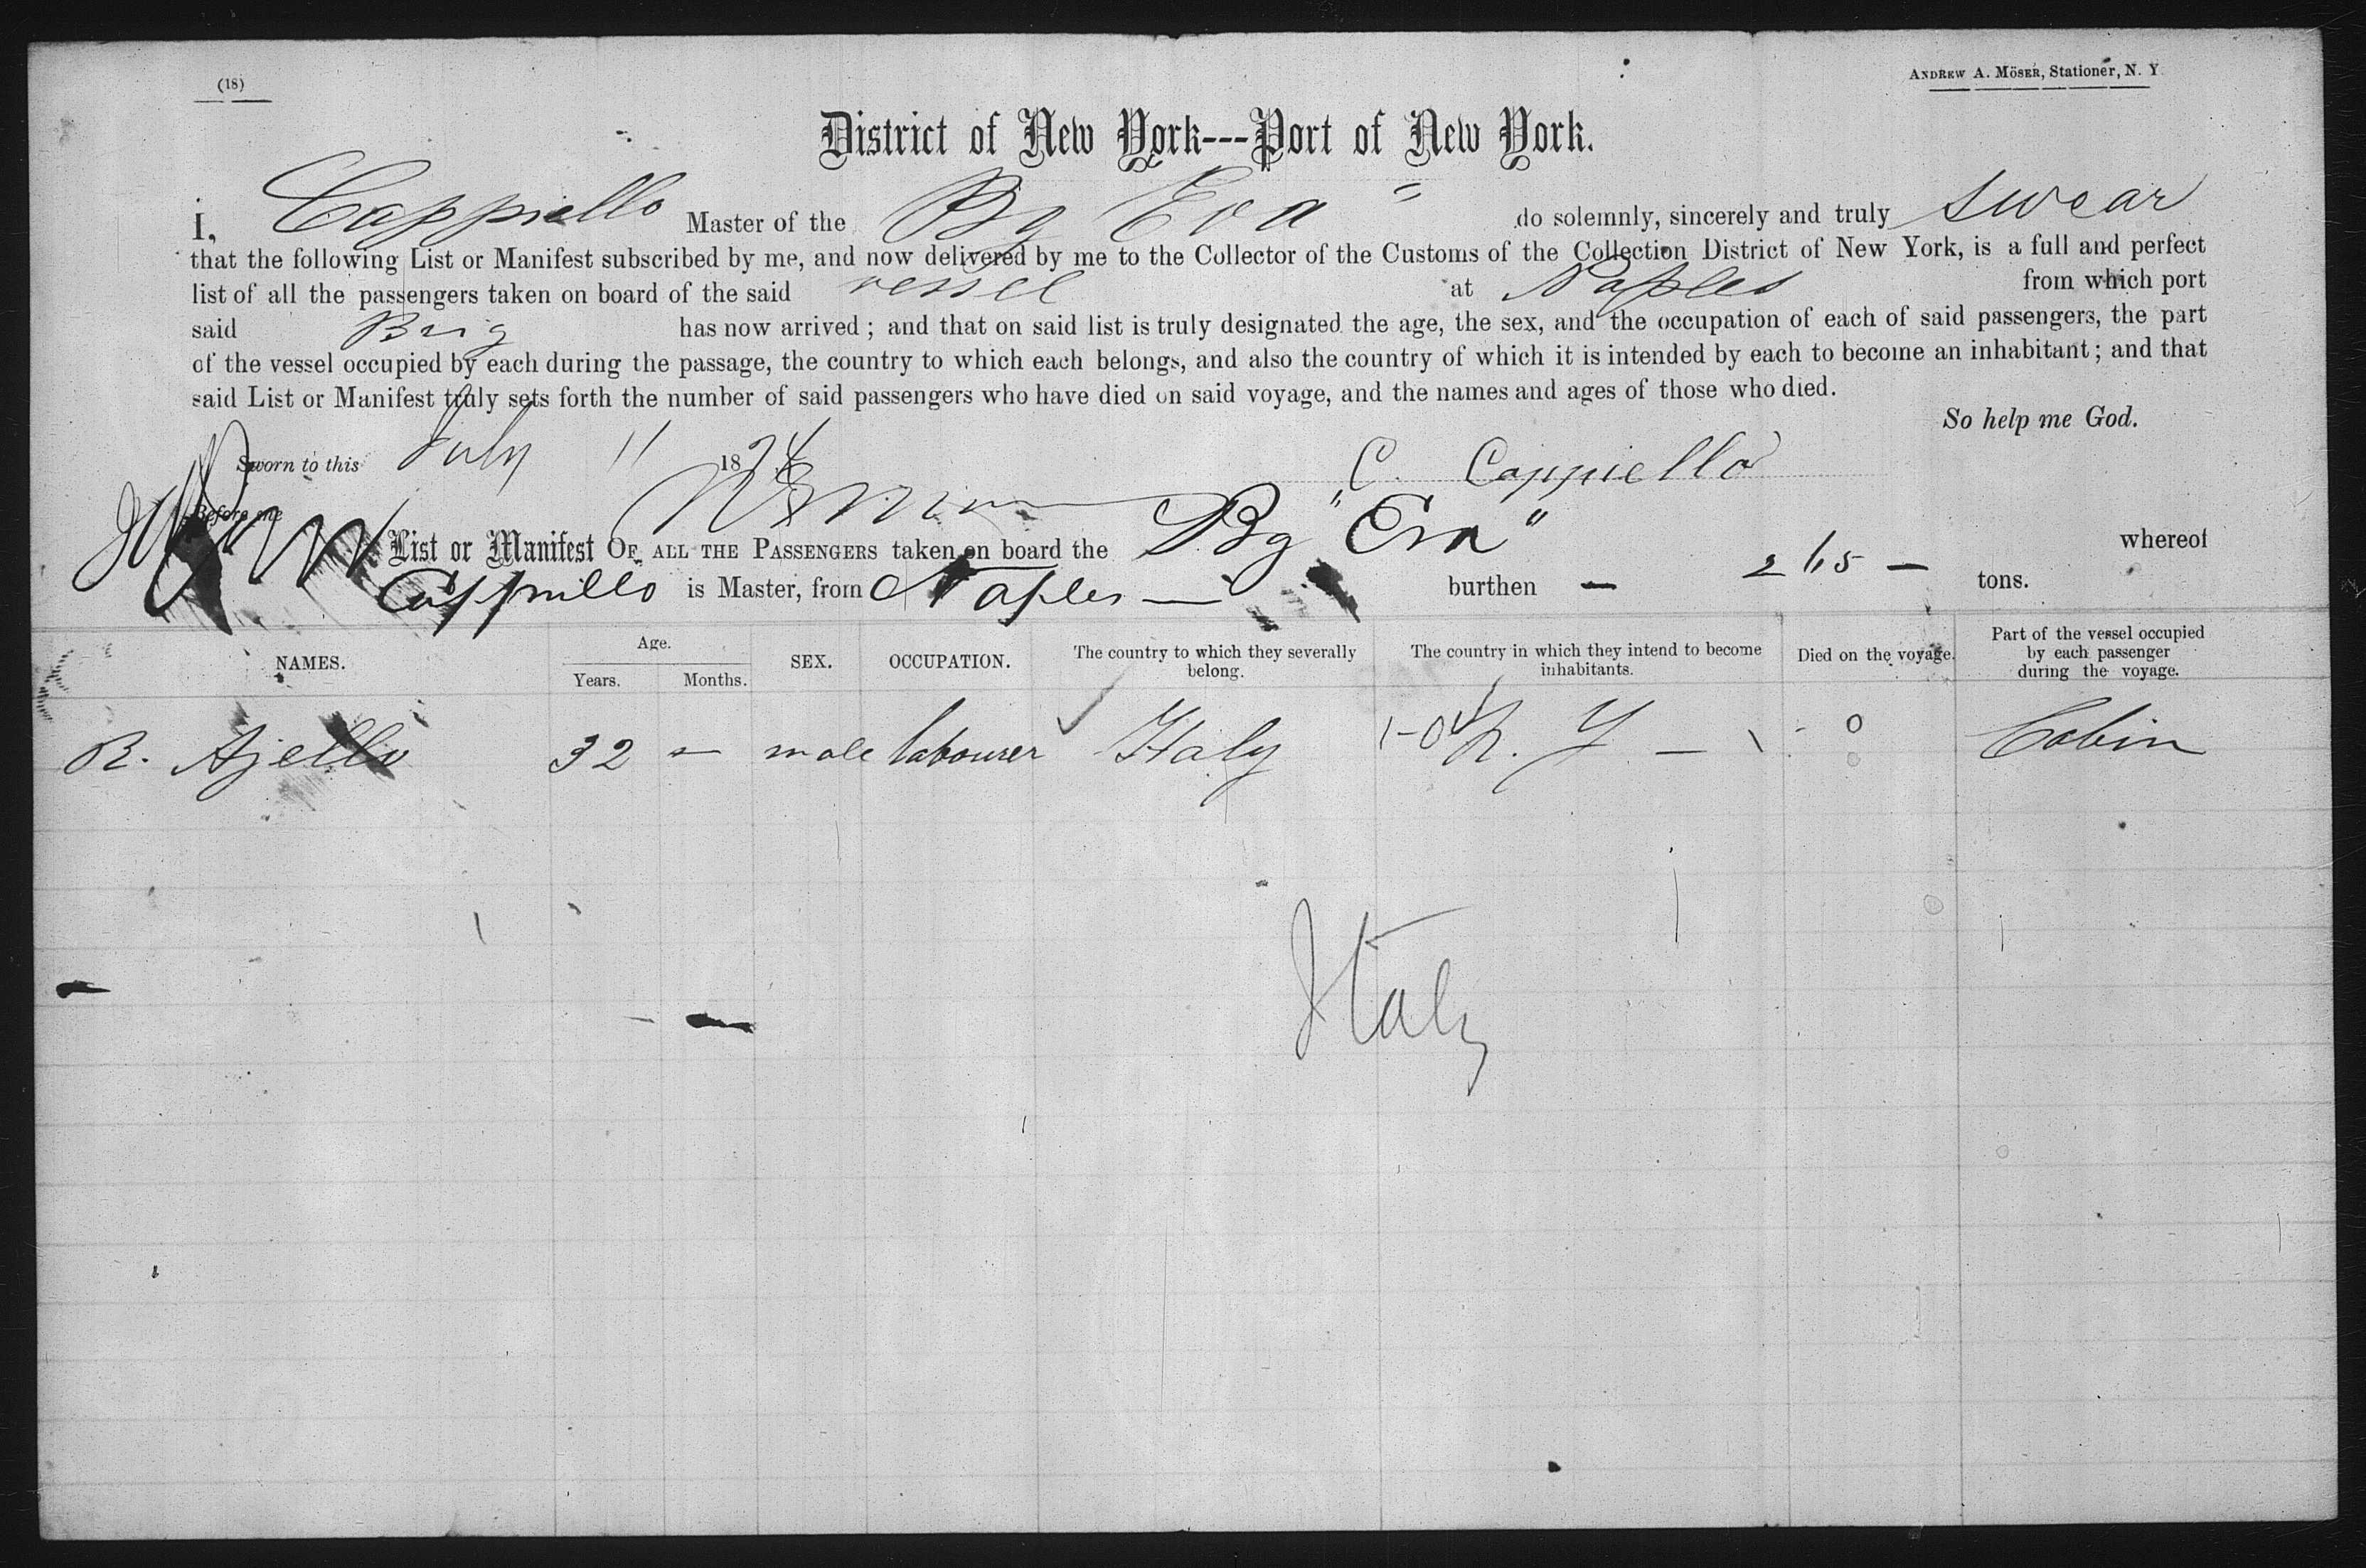 (18)
ANDREW A. MÖSER, Stationer, N. Y.
District of New York---Port of New York.
I, Cappiello Master of the Bg Eva" do solemnly, sincerely and truly swear
that the following List or Manifest subscribed by me, and now delivered by me to the Collector of the Customs of the Collection District of New York, is a full and perfect
list of all the passengers taken on board of the said vessel at Naples from which port
said Brig has now arrived; and that on said list is truly designated the age, the sex, and the occupation of each of said passengers, the part
of the vessel occupied by each during the passage, the country to which each belongs, and also the country of which it is intended by each to become an inhabitant; and that
said List or Manifest truly sets forth the number of said passengers who have died on said voyage, and the names and ages of those who died.
So help me God.
Sworn to this July 11 1874 C. Cappiello
Before me
List or Manifest OF ALL THE PASSENGERS taken on board the Bg "Eva" whereof
Cappiello is Master, from Naples — burthen — 265 — tons.
NAMES. Age. Years. Months. SEX. OCCUPATION. The country to which they severally belong. The country in which they intend to become inhabitants. Died on the voyage. Part of the vessel occupied by each passenger during the voyage.
R. Ajello 32 — male labourer Italy N. Y — 0 Cabin
Italy